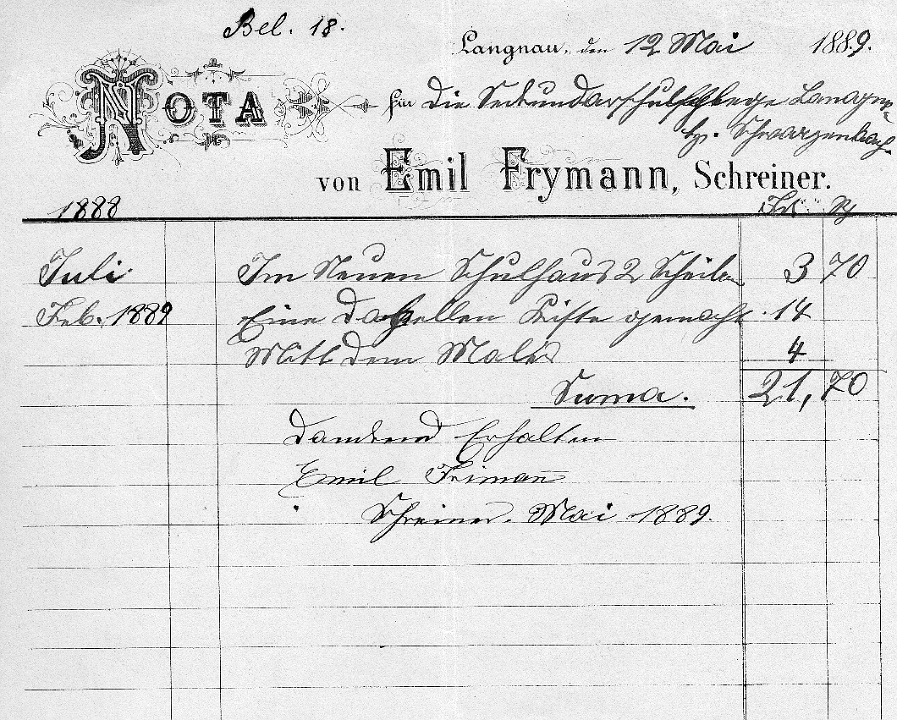 Bel. 18.
Langnau, den 12 Mai 1889.
NOTA für Die Sekundarschulpflege Langnau
Schwarzenbach.
von Emil Frymann, Schreiner.
1888 Fr. Rp
Juli Im Neuen Schulhaus 2 Scheiben 3 70
Feb. 1889 Eine Kiste gemacht 14
Mitt Dem 4
Suma. 21,70
Dankend Erhalten
Emil Frimann
Schreiner. Mai 1889.